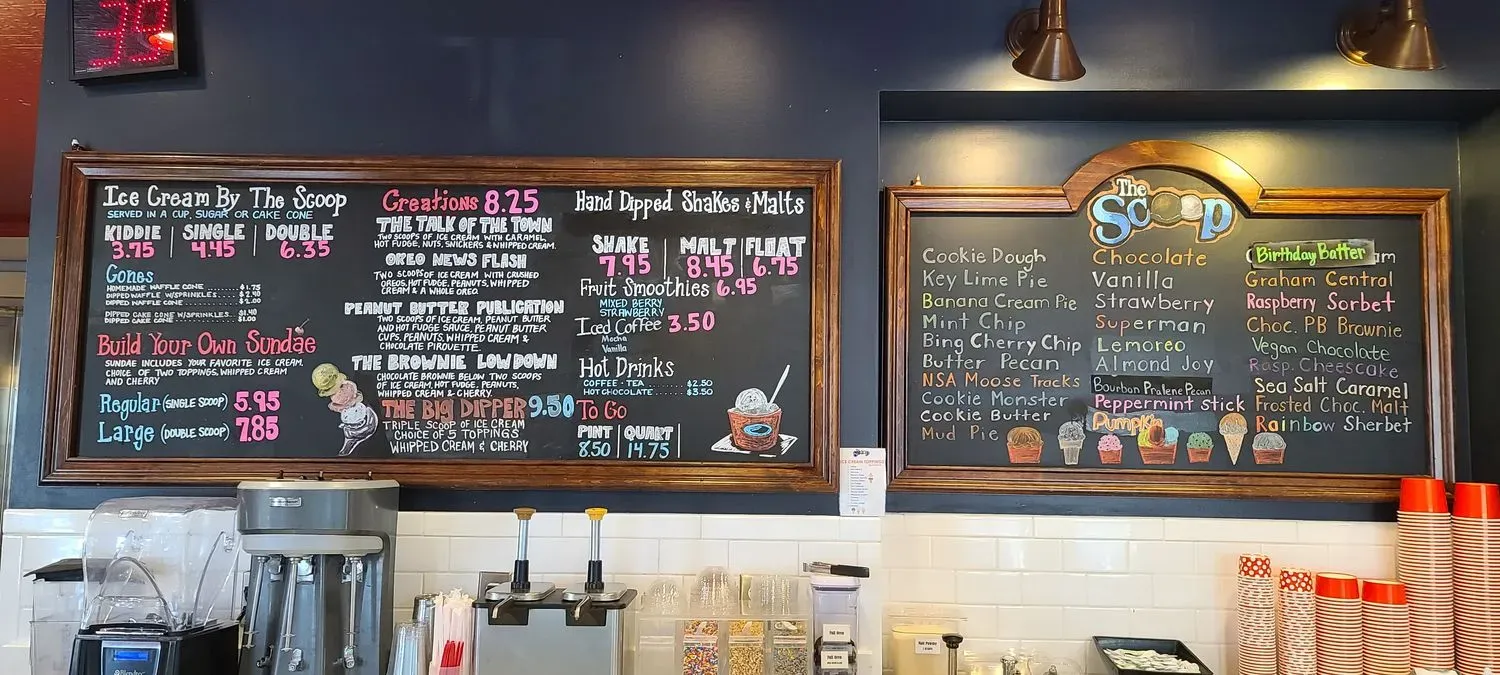 39
Ice Cream By The Scoop
SERVED IN A CUP, SUGAR OR CAKE CONE
KIDDIE SINGLE DOUBLE
3.75 4.45 6.35
Cones
HOMEMADE WAFFLE CONE $1.75
DIPPED WAFFLE W/SPRINKLES $2.40
DIPPED WAFFLE CONE $2.00
DIPPED CAKE CONE W/SPRINKLES $1.40
DIPPED CAKE CONE $1.00
Build Your Own Sundae
SUNDAE INCLUDES YOUR FAVORITE ICE CREAM,
CHOICE OF TWO TOPPINGS, WHIPPED CREAM
AND CHERRY
Regular (SINGLE SCOOP) 5.95
Large (DOUBLE SCOOP) 7.85
Creations 8.25
THE TALK OF THE TOWN
TWO SCOOPS OF ICE CREAM WITH CARAMEL,
HOT FUDGE, NUTS, SNICKERS & WHIPPED CREAM.
OREO NEWS FLASH
TWO SCOOPS OF ICE CREAM WITH CRUSHED
OREOS, HOT FUDGE, PEANUTS, WHIPPED
CREAM & A WHOLE OREO.
PEANUT BUTTER PUBLICATION
TWO SCOOPS OF ICE CREAM, PEANUT BUTTER
AND HOT FUDGE SAUCE, PEANUT BUTTER
CUPS, PEANUTS, WHIPPED CREAM &
CHOCOLATE PIROUETTE.
THE BROWNIE LOW DOWN
CHOCOLATE BROWNIE BELOW TWO SCOOPS
OF ICE CREAM, HOT FUDGE, PEANUTS,
WHIPPED CREAM & CHERRY.
THE BIG DIPPER 9.50
TRIPLE SCOOP OF ICE CREAM
CHOICE OF 5 TOPPINGS
WHIPPED CREAM & CHERRY
Hand Dipped Shakes & Malts
SHAKE MALT FLOAT
7.95 8.45 6.75
Fruit Smoothies 6.95
MIXED BERRY
STRAWBERRY
Iced Coffee 3.50
Mocha
Vanilla
Hot Drinks
COFFEE · TEA $2.50
HOT CHOCOLATE $3.50
To Go
PINT QUART
8.50 14.75
The
Scoop
Cookie Dough
Key Lime Pie
Banana Cream Pie
Mint Chip
Bing Cherry Chip
Butter Pecan
NSA Moose Tracks
Cookie Monster
Cookie Butter
Mud Pie
Chocolate
Vanilla
Strawberry
Superman
Lemoreo
Almond Joy
Bourbon Pralene Pecan
Peppermint Stick
Pumpkin
Birthday Batter
Graham Central
Raspberry Sorbet
Choc. PB Brownie
Vegan Chocolate
Rasp. Cheesecake
Sea Salt Caramel
Frosted Choc. Malt
Rainbow Sherbet
ICE CREAM TOPPINGS